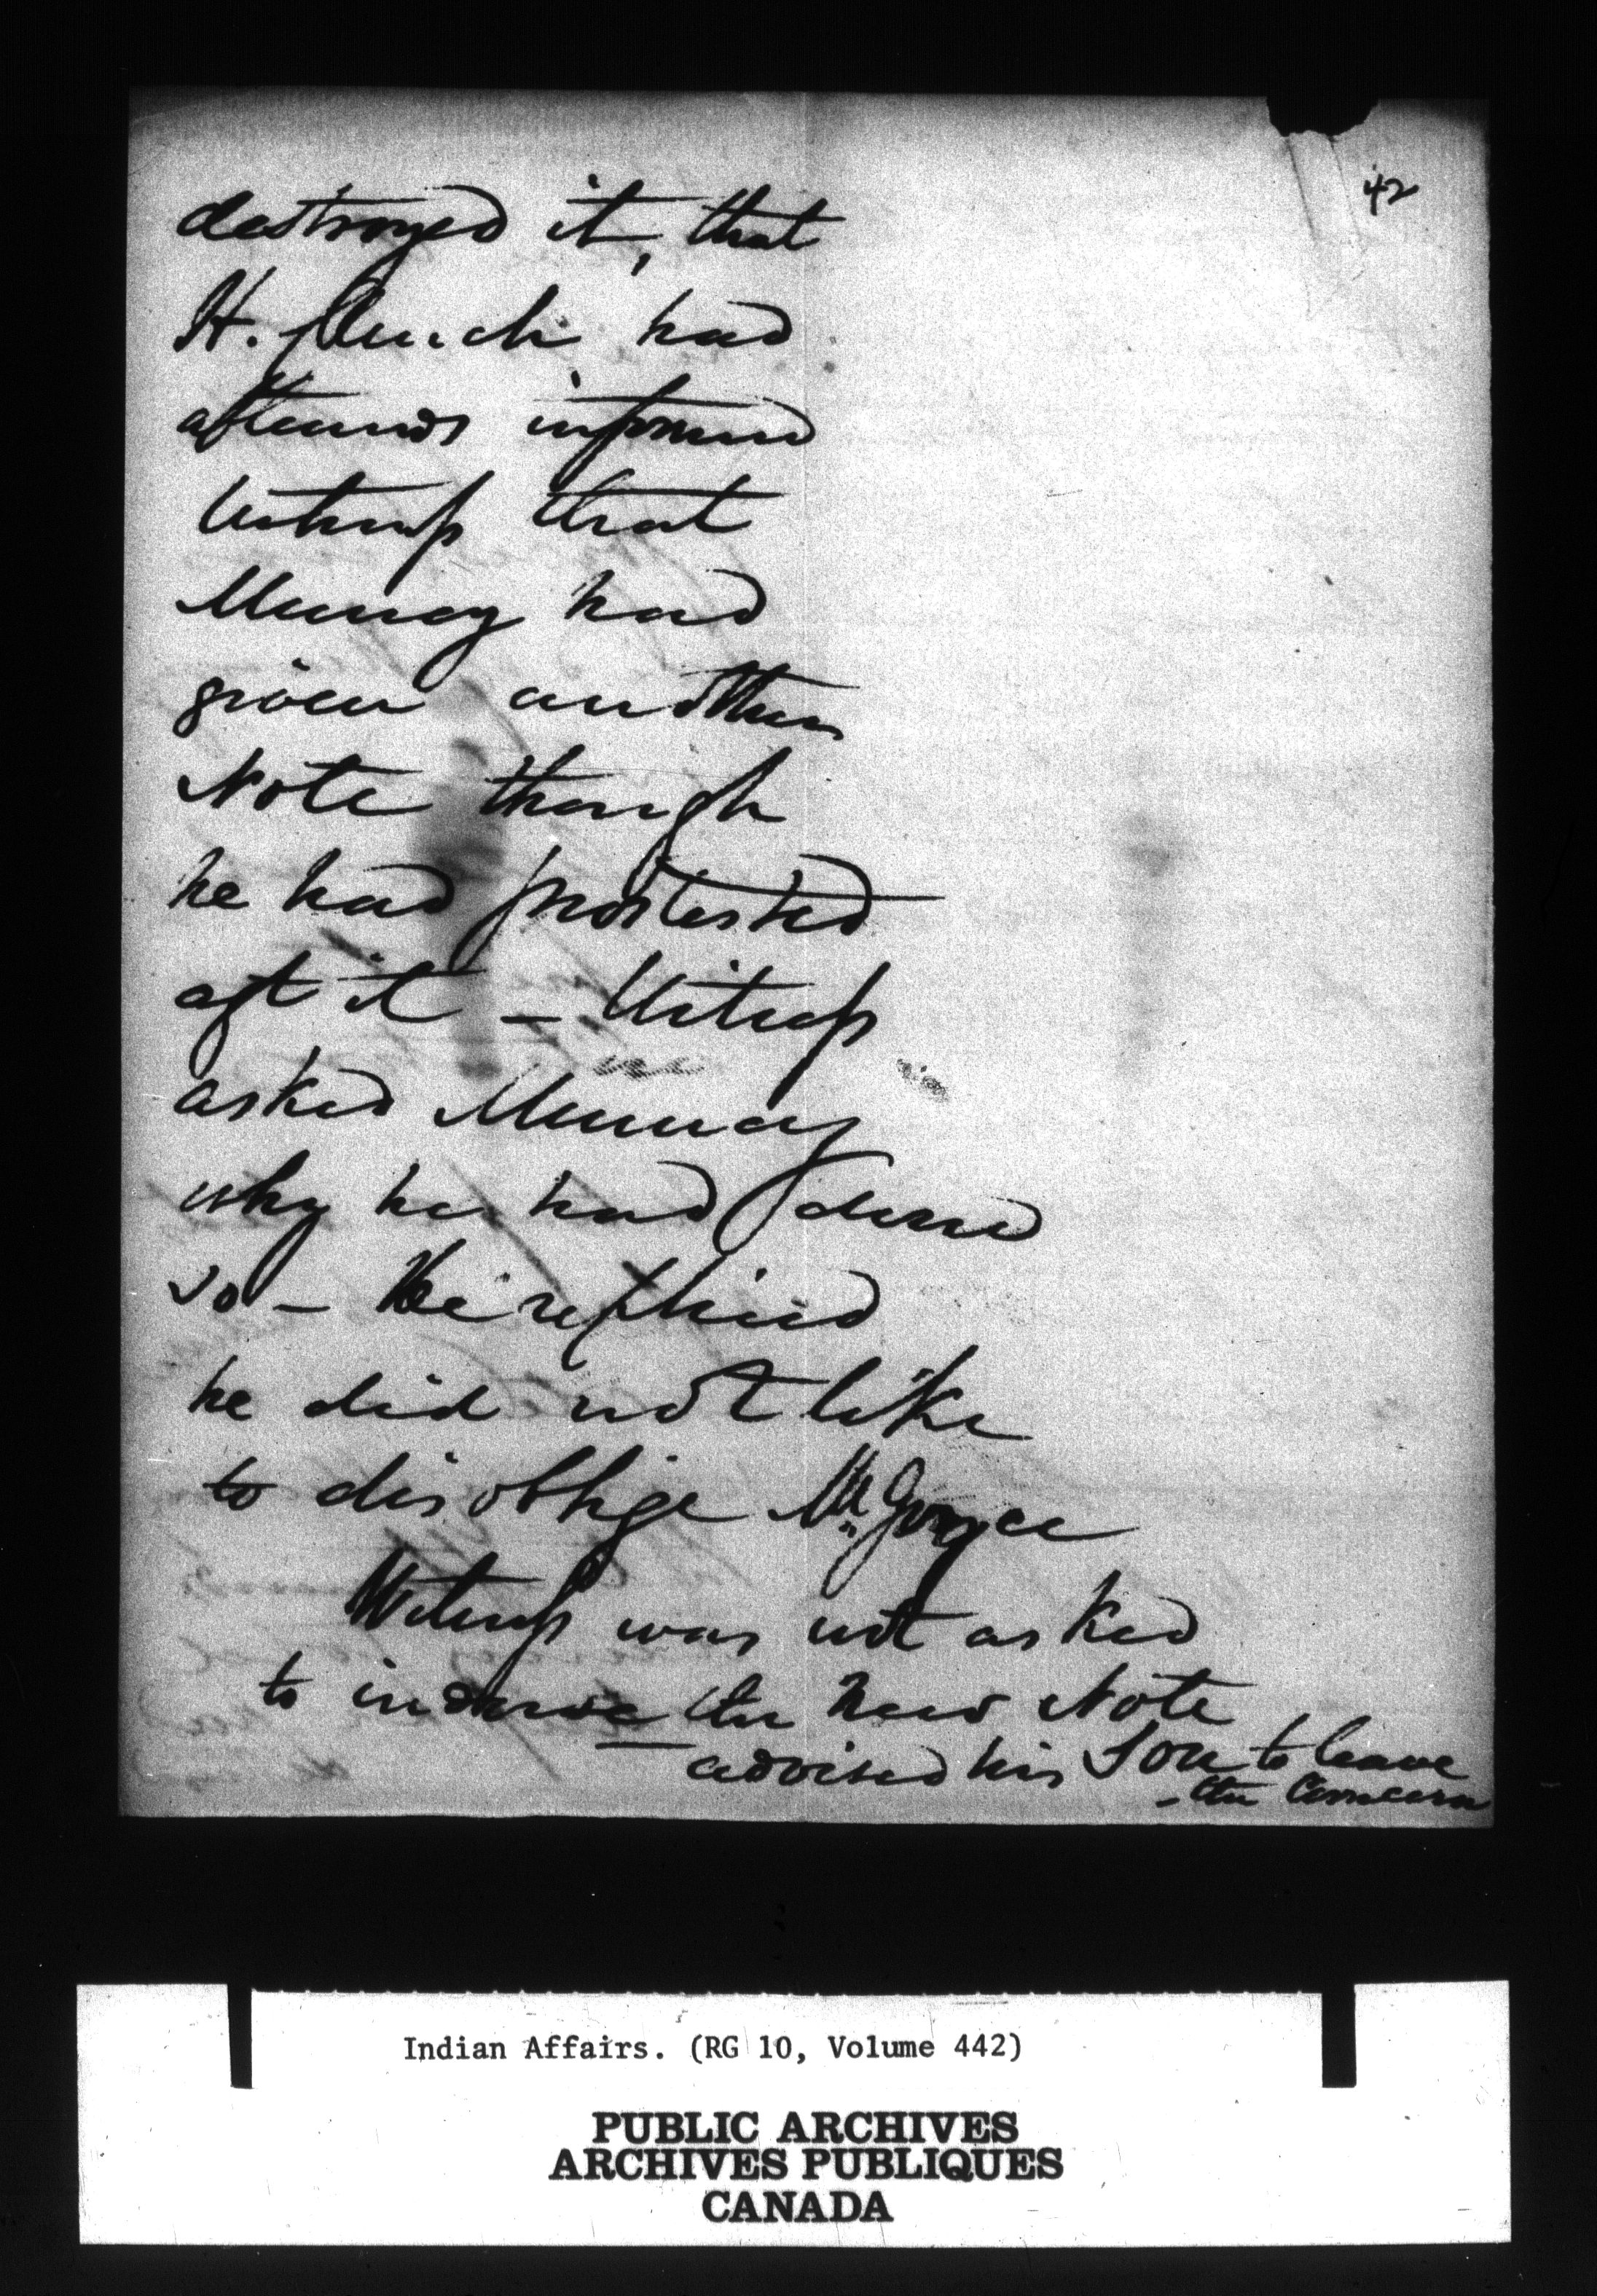 42
destroyed it, that
H. had
afterwards informed
Witness that
Murray had
given another
Note though
he had protested
agt it – Witness
asked Murray
why he had done
so – He replied
he did not like
to disoblige Mr Joyce
Witness was not asked
to indorse the new Note
– advised his Son to leave
– the Concern
Indian Affairs. (RG 10, Volume 442)
PUBLIC ARCHIVES
ARCHIVES PUBLIQUES
CANADA